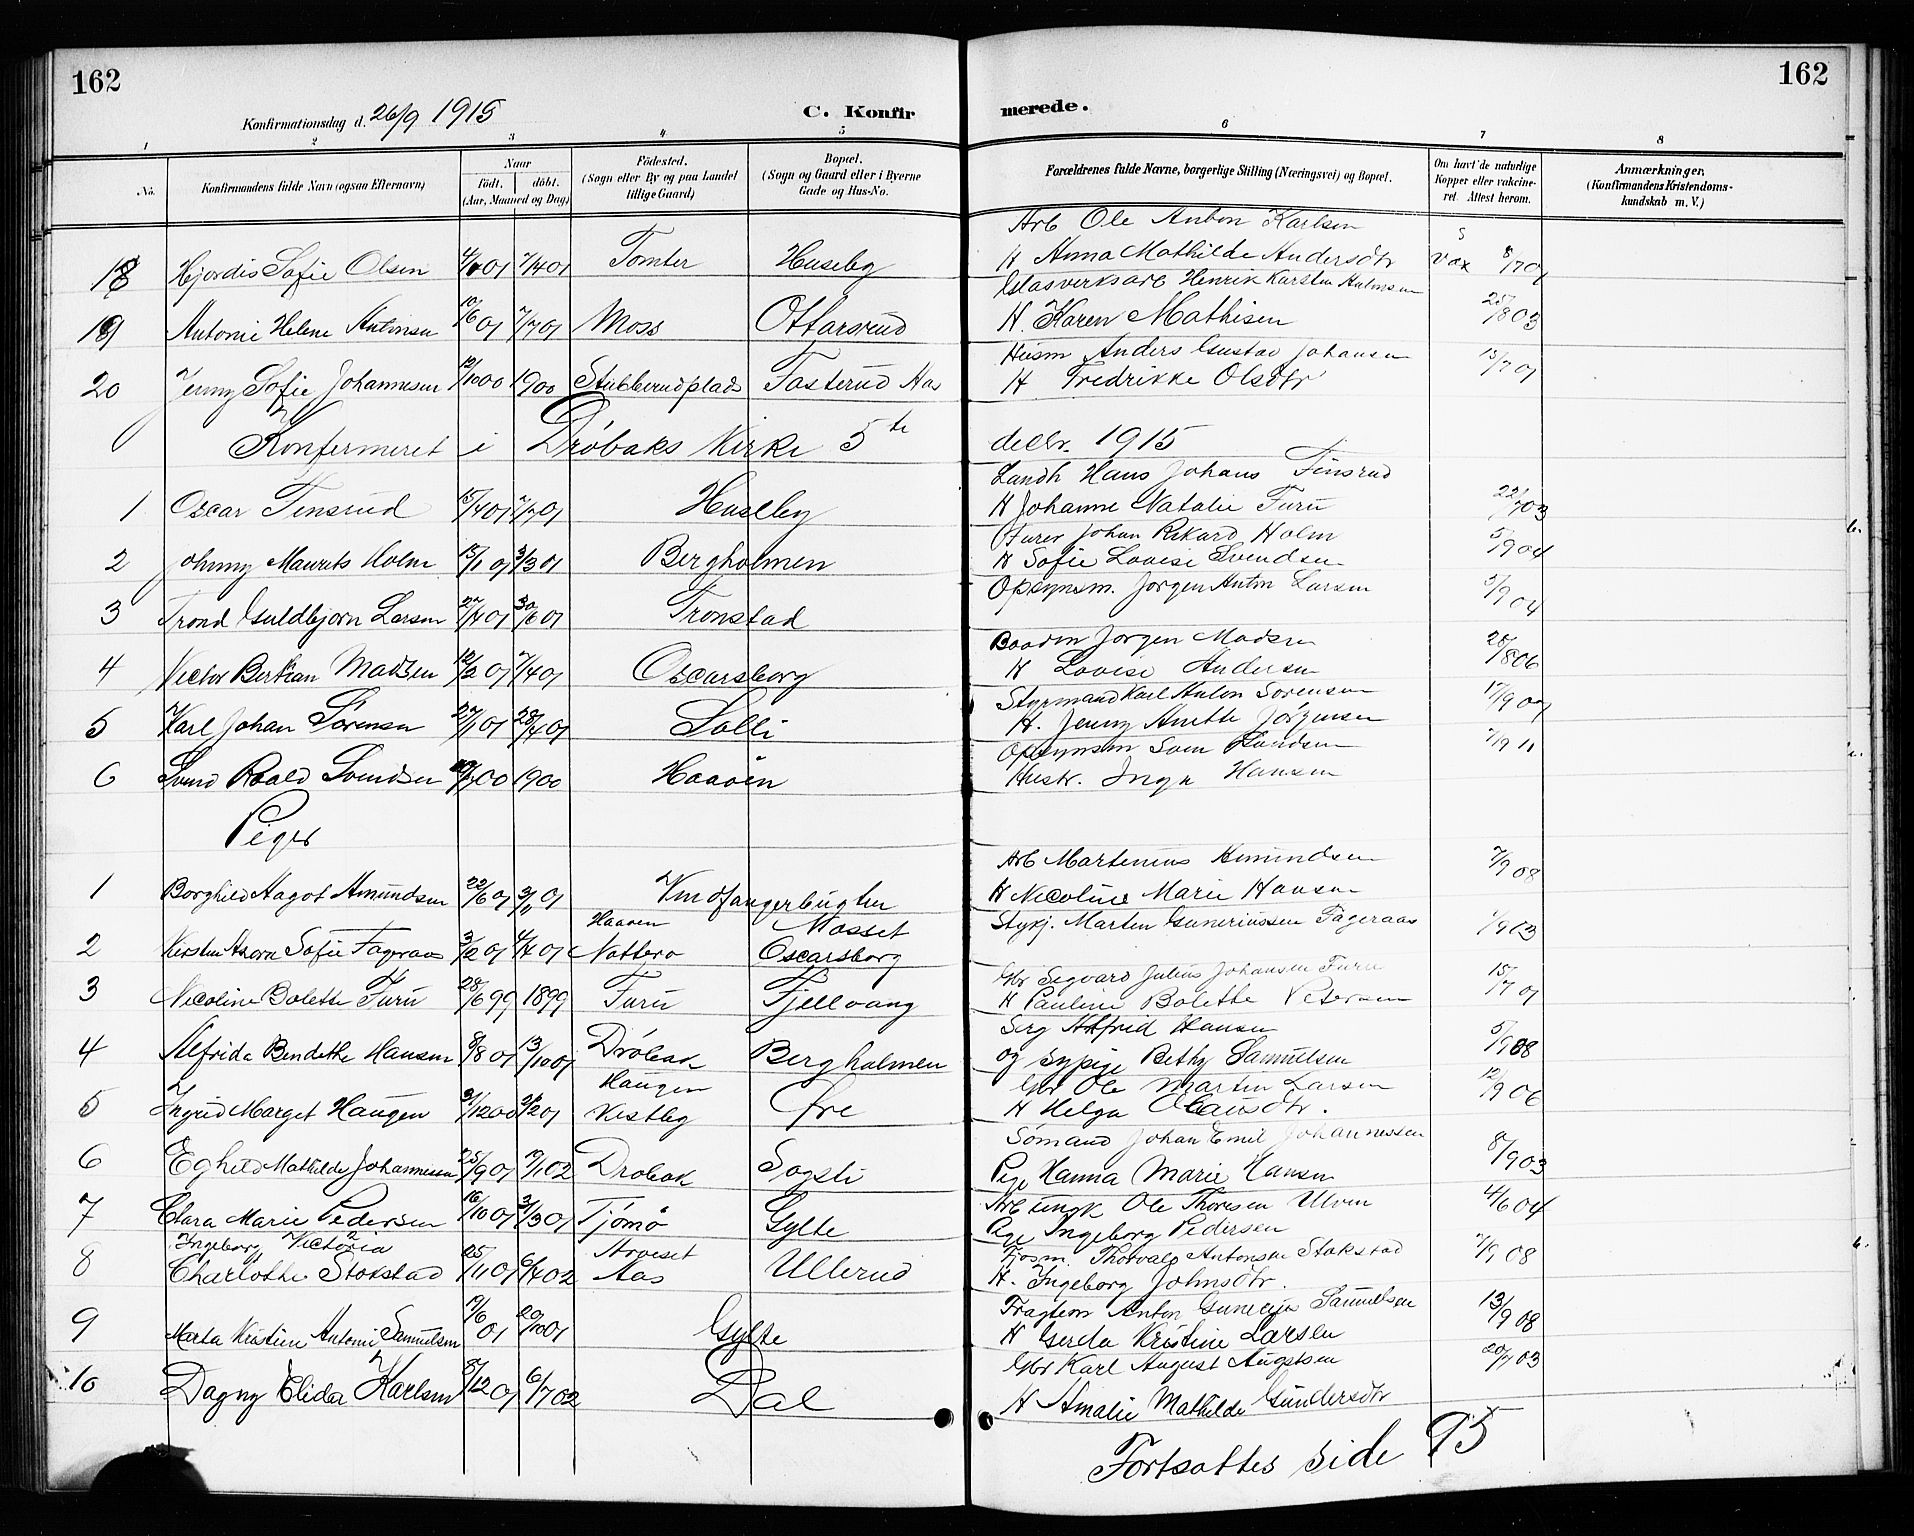 162
162
Konfirmationsdag d. 26/9 1915
C. Konfirmerede.
1 2 3 4 5 6 7 8
No. Konfirmandens fulde Navn (ogsaa Efternavn) Naar født. døbt. (Aar, Maaned og Dag) Fødested. (Sogn eller By og paa Landet tillige Gaard) Bopæl. (Sogn og Gaard eller i Byerne Gade og Hus-No. Forældrenes fulde Navne, borgerlige Stilling (Næringsvei) og Bopæl. Om havt de naturlige Kopper eller vakcineret. Attest herom. Anmærkninger. (Konfirmandens Kristendomskundskab m. V.)
18 Hjordis Sofie Olsen 7/4 01 Tomter Huseby Arb Ole Anton Karlsen
H Anna Mathilde Andersdtr vax 8/7 01
19 Antonie Helene 7/7 01 Moss Ottarsrud Glasverksarb Henrik Karsten
H. Karen Mathisen 25/8 03
20 Jenny Sofie Johannesen 12/10 00 1900 Stubberudplads Fosterud Aas Husm Anders Gustav Johansen
H Fredrikke Olsdtr 15/7 01
Konfermeret i Drøbaks Kirke 5te decbr. 1915
1 Oscar Finsrud 15/4 01 7/7 01 Huseby Landh Hans Johans Finsrud
H Johanne Natalie Furu 22/7 03
2 Johnny Maurits Holm 15/1 01 3/3 01 Bergholmen Furer Johan Rikard Holm
H Sofie Lovise Svendsen 5/9 04
3 Trond Guldbjørn Larsen 27/4 01 30/6 01 Tronstad Opsynsm. Jørgen Anton Larsen 5/9 04
4 Victor Bertran Madsen 12/2 01 7/4 01 Oscarsborg Baadm Jørgen Madsen
H Lovise Andersen 28/8 06
5 Karl Johan Sørensen 27/1 01 28/4 01 Solli Styrmand Karl Anton Sørensen 17/9 07
H. Jenny Anette Jørgensen
6 Svend Roald Svendsen 1900 Haaøen Opsynsm Sven Svendsen 7/9 11
Hustr. Inga Hansen
Piger
1 Borghild Aagot Amundsen 22/6 01 3/11 01 Vindfangerbugten Arb Martinius Amundsen 7/9 08
H Nicoline Marie Hansen
2 Kirsten Azora Sofie Fageraas 3/2 01 4/4 01 Haaøen Nøtterø Mosset Oscarsborg Stykj. Marten Gunerinssen Fageraas 1/9 03
3 Nicoline Bolette Furu 28/6 99 1899 Furu Fjellvang Gbr Sigvard Julius Johansen Furu
H Pauline Bolette Petersen 15/7 01
4 Alfrida Bendekte Hansen 8/8 01 13/10 01 Drøbak Bergholmen Serg Alfrid Hansen
og sypige Bethy Samuelsen 5/9 08
5 Ingrid Marget Haugen 31/12 00 2/2 01 Haugen Vestby Øre Gbr Ole Martin Larsen
H Helga Olausdtr. 12/9 06
6 Eghild Mathilde Johannessen 25/9 01 1/1 02 Drøbak Sogsti Sømand Johan Emil Johannessen
Pige Hanna Marie Hansen 8/9 03
7 Clara Marie Pedersen 16/10 01 Tjømø Gylte Arb ungk Ole Thoresen Ulven 4/6 04
Pige Ingeborg Pedersen
8 Ingeborg Victoria Charlotte Stokstad 25/11 01 6/4 02 Arveset Aas Ullerud Fjosm. Thorvald Antonsen Stokstad 7/9 08
H. Ingeborg Johnsdtr.
9 Marta Kristine Antonie Samuelsen 01 20/10 01 Gylte Fragtem Anton Samuelsen 13/9 08
H Gerda Kristine Larsen
10 Dagny Elida Karlsen 8/12 01 6/7 02 Dal Gbr Karl August Augstsen 20/7 03
H Amalie Mathilde Gundersdtr
Fortsættes side 95